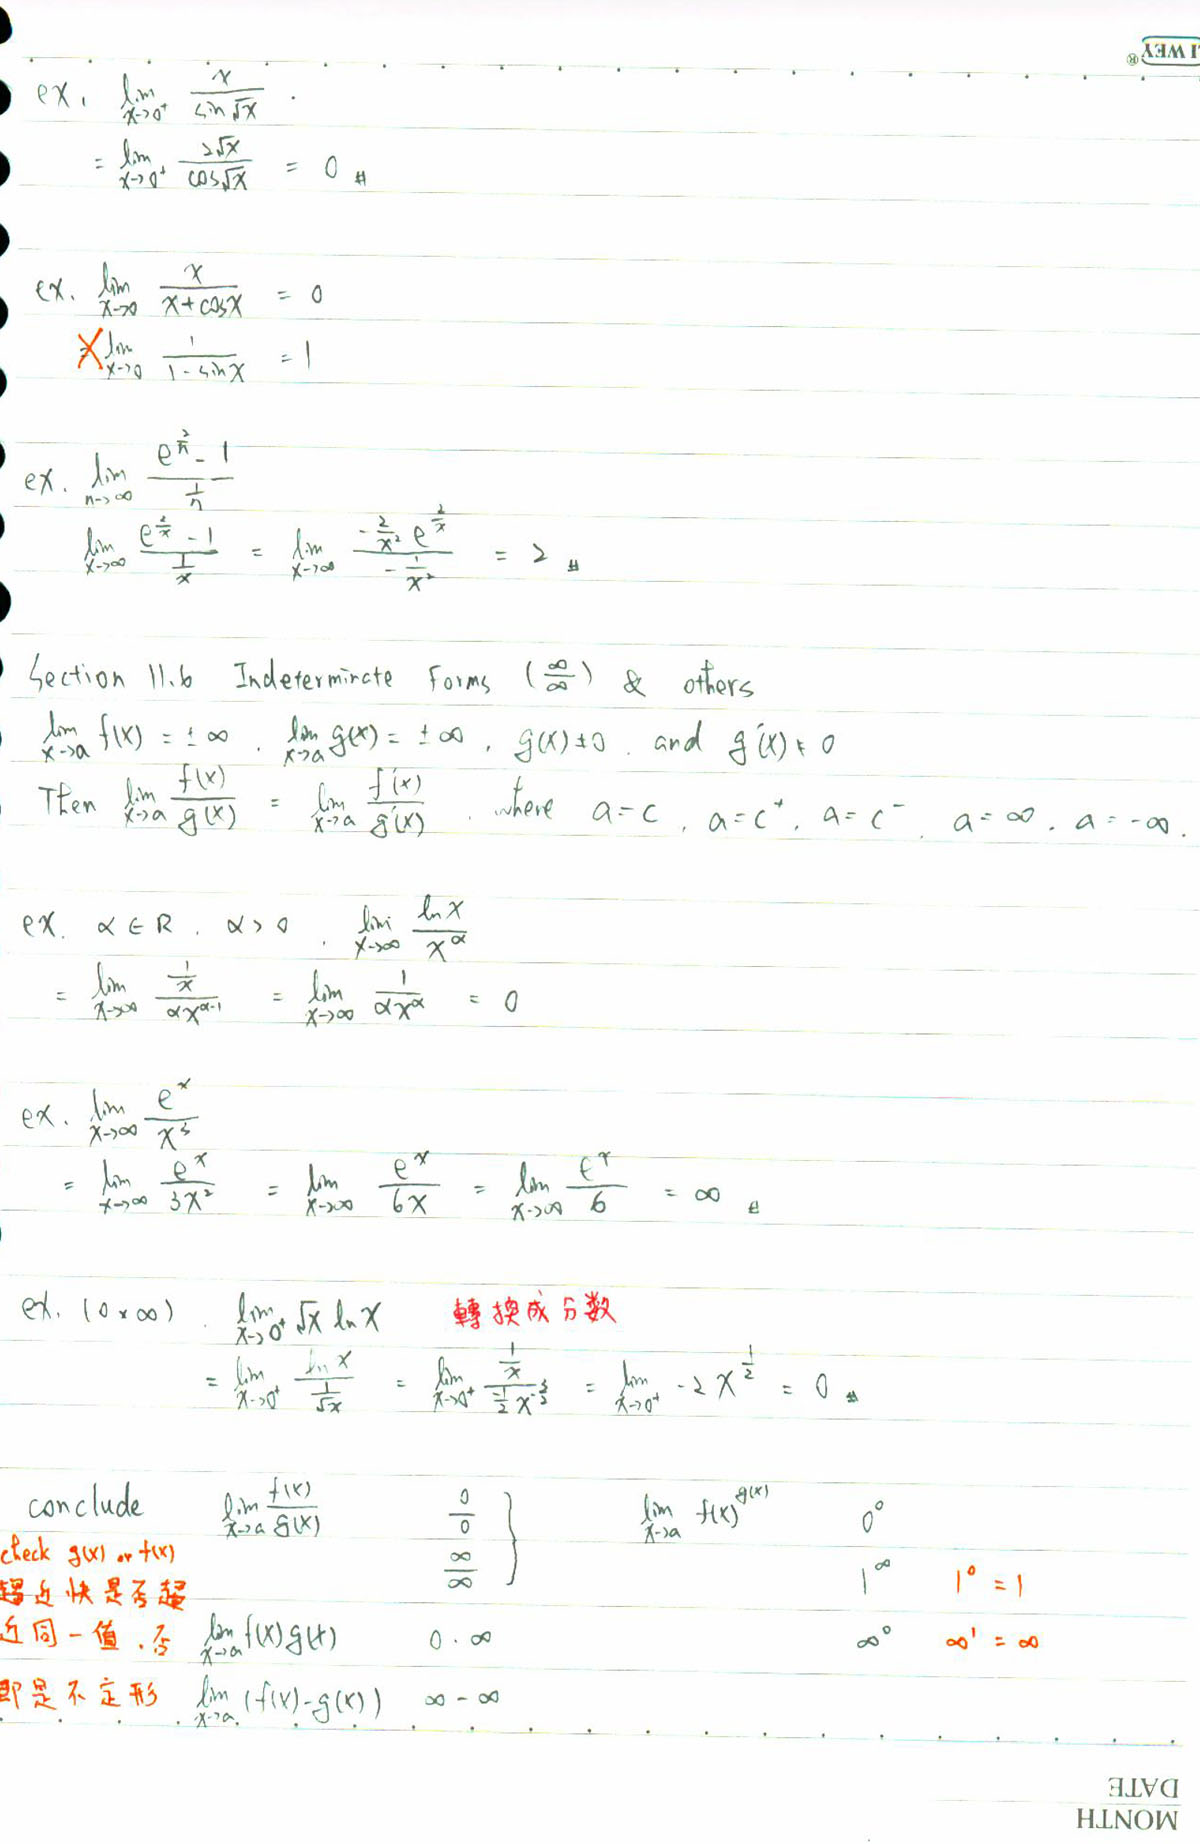 LI WEY ®
ex. lim x→0⁺ x / sin√x .
= lim x→0⁺ 2√x / cos√x = 0 #
ex. lim x→0 x / (x + cosx) = 0
X = lim x→0 1 / (1 - sinx) = 1
ex. lim n→∞ (e^(2/n) - 1) / (1/n)
lim x→∞ (e^(2/x) - 1) / (1/x) = lim x→∞ (-2/x² e^(2/x)) / (-1/x²) = 2 #
Section 11.6 Indeterminate Forms (∞/∞) & others
lim x→a f(x) = ±∞ , lim x→a g(x) = ±∞ , g(x) ≠ 0 , and g'(x) ≠ 0
Then lim x→a f(x)/g(x) = lim x→a f'(x)/g'(x) , where a = c , a = c⁺ , a = c⁻ , a = ∞ , a = -∞ .
ex. α ∈ R , α > 0 , lim x→∞ lnx / x^α
= lim x→∞ (1/x) / (αx^(α-1)) = lim x→∞ 1 / (αx^α) = 0
ex. lim x→∞ e^x / x³
= lim x→∞ e^x / 3x² = lim x→∞ e^x / 6x = lim x→∞ e^x / 6 = ∞ #
ex. (0×∞) . lim x→0⁺ √x lnx 轉換成分數
= lim x→0⁺ lnx / (1/√x) = lim x→0⁺ (1/x) / (-1/2 x^(-3/2)) = lim x→0⁺ -2x^(1/2) = 0 #
conclude lim x→a f(x)/g(x) 0/0 } lim x→a f(x)^g(x) 0⁰
check g(x) or f(x) ∞/∞
趨近快是否趨 1^∞ 1⁰ = 1
近同一值,否 lim x→a f(x)g(x) 0·∞ ∞⁰ ∞¹ = ∞
即是不定形 lim x→a (f(x)-g(x)) ∞-∞
DATE
MONTH